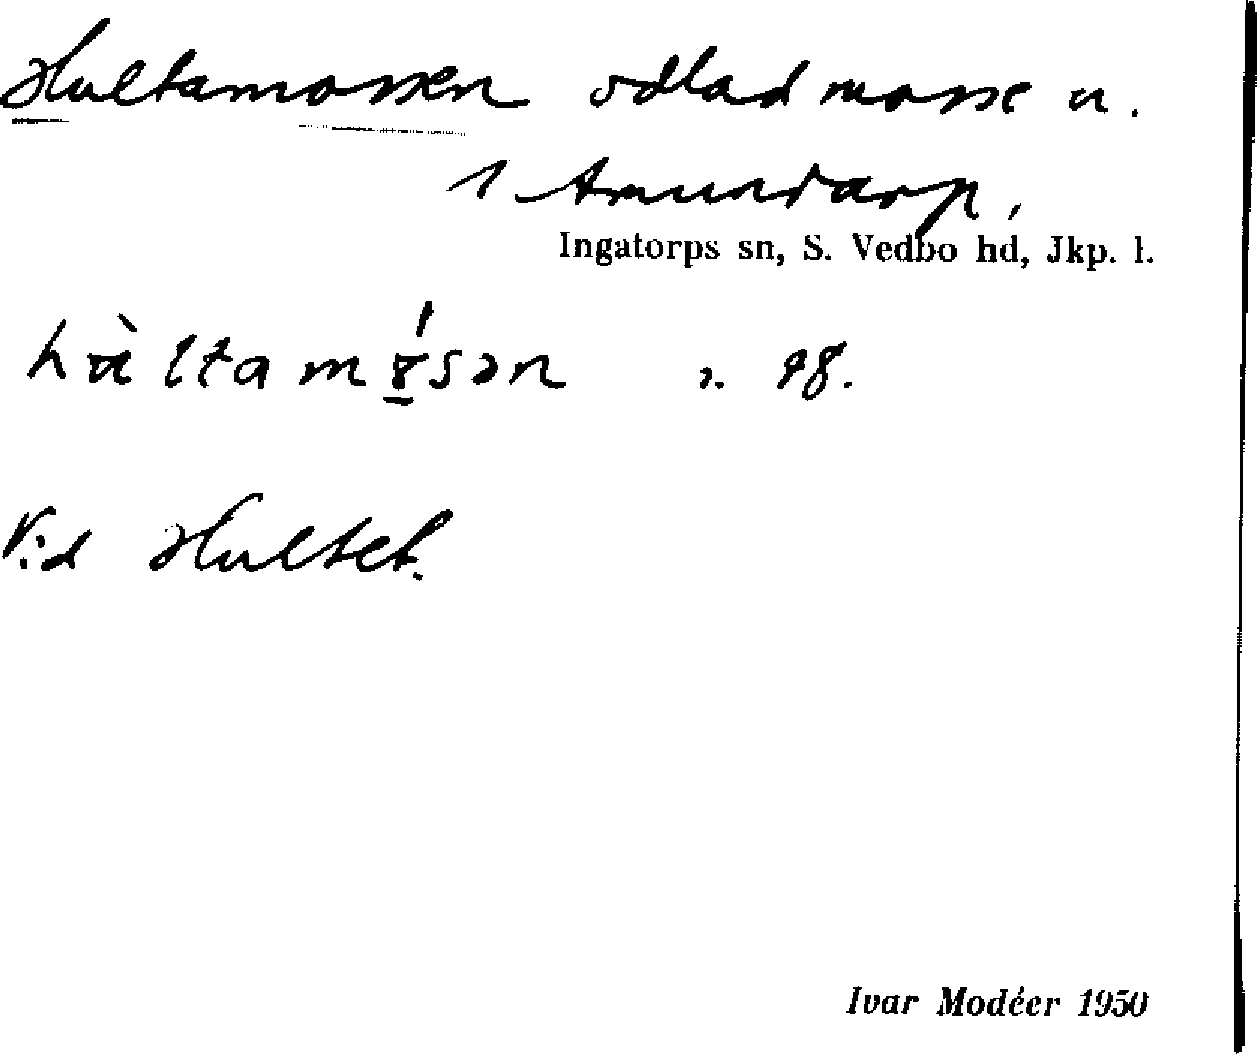 Hultamossen odlad mosse u.
1 Amundarp,
Ingatorps sn, S. Vedbo hd, Jkp. l.
hùltamó̱sən
Vid Hultet.
Ivar Modéer 1950